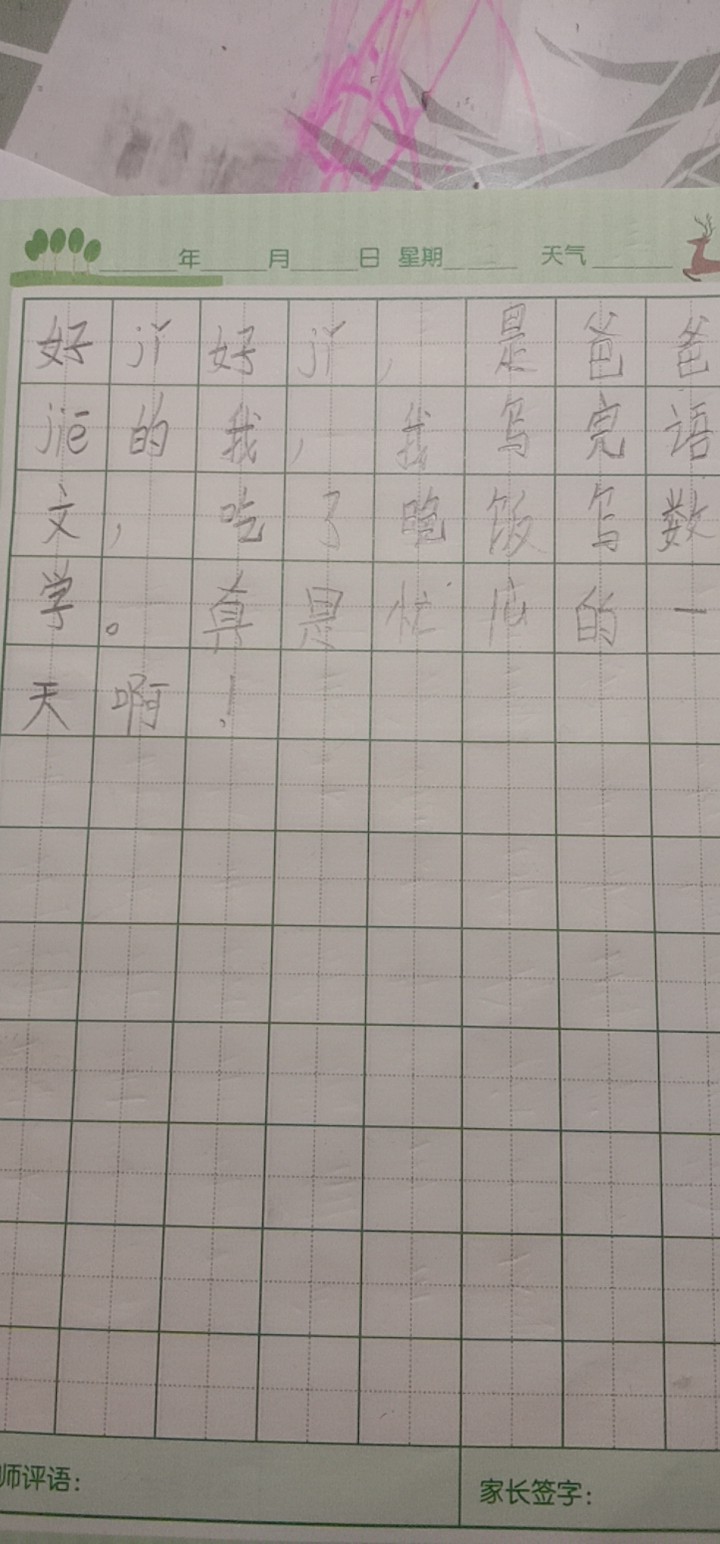 年 月 日 星期 天气
好jǐ好jǐ，是爸爸
jiē的我，我写完语
文，吃了晚饭写数
学。真是忙的一
天啊！
师评语：
家长签字：